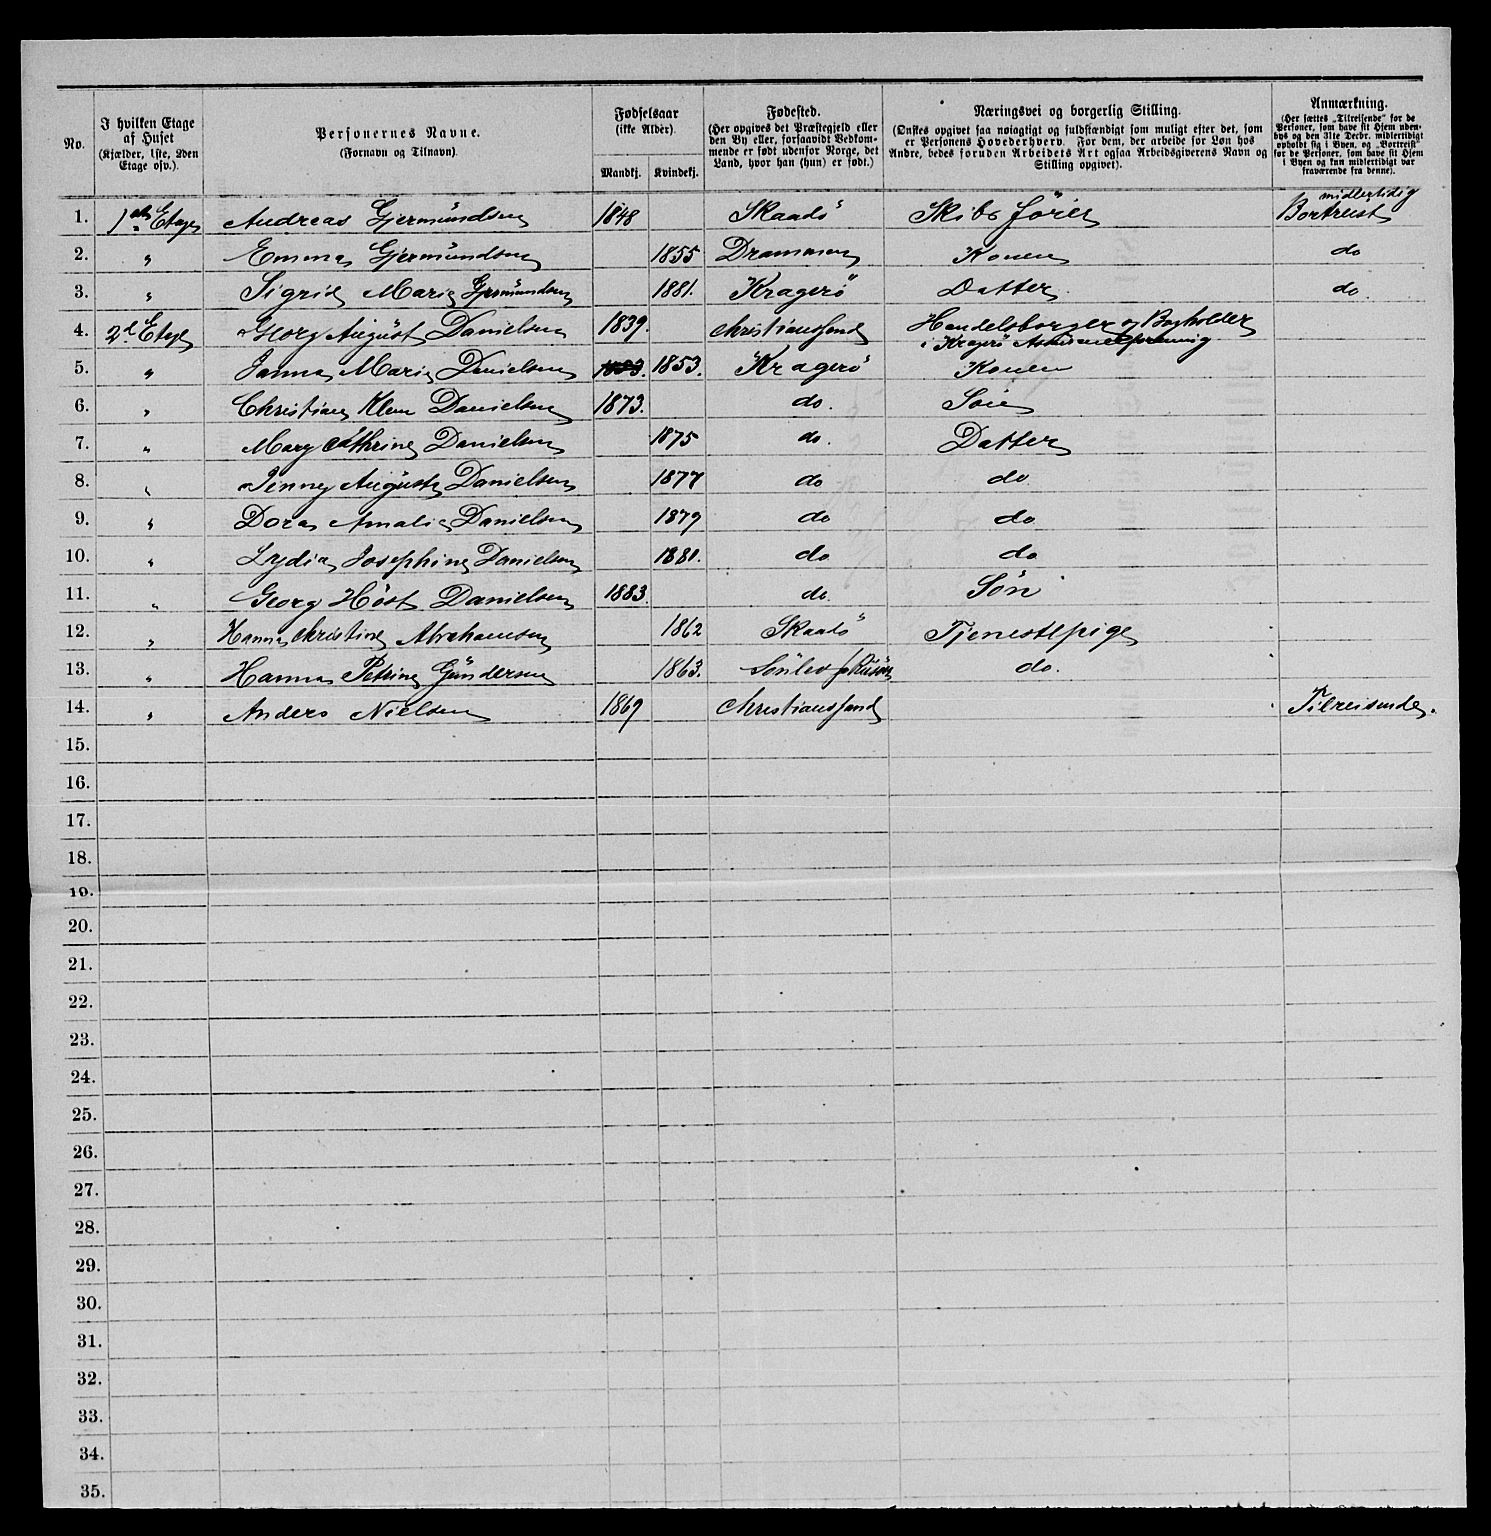 No. | I hvilken Etage af Huset (Kjælder, 1ste, 2den Etage osv.). | Personernes Navne. (Fornavn og Tilnavn). | Fødselsaar (ikke Alder). Mandkj. | Kvindekj. | Fødested. (Her opgives det Præstegjeld eller den By eller, forsaavidt Vedkommende er født udenfor Norge, det Land, hvor han (hun) er født.) | Næringsvei og borgerlig Stilling. (Ønskes opgivet saa nøiagtigt og fuldstændigt som muligt efter det, som er Personens Hovederhverv. For dem, der arbeide for Løn hos Andre, bedes foruden Arbeidets Art ogsaa Arbeidsgiverens Navn og Stilling opgivet). | Anmærkning. (Her sættes „Tilreisende“ for de Personer, som have sit Hjem udenbys og den 31te Decbr. midlertidigt opholdt sig i Byen, og „Bortreist“ for de Personer, som have sit Hjem i Byen og kun midlertidigt var fraværende fra denne).
1. | 1ste Etage | Andreas Gjermundsen | 1848 | | Skaadø | Skibsfører | midlertidig Bortreist
2. | " | Emma Gjermundsen | | 1855 | Drammen | Konen | do
3. | " | Sigrid Marie Gjermundsen | | 1881. | Kragerø | Datter | do
4. | 2d Etage | Georg August Danielsen | 1839. | | Christianssand | Handelsborger og Bogholder
i Kragerø
5. | " | Janna Marie Danielsen | 1853. | 1853. | Kragerø | Konen
6. | " | Christian Klem Danielsen | 1873. | | do. | Søn
7. | " | Mary Cathrine Danielsen | | 1875 | do. | Datter
8. | " | Jenny Augusta Danielsen | | 1877 | do | do
9. | " | Dora Amalie Danielsen | | 1879 | do | do
10. | " | Lydia Josephine Danielsen | | 1881. | do | do
11. | " | Georg Høst Danielsen | 1883. | | do. | Søn
12. | " | Hanna Christine Abrahamsen | | 1862 | Skaadø | Tjenestepige
13. | " | Hanna Petrine Gundersen | | 1863. | Sønlev | do.
14. | " | Anders Nielsen | 1869 | | Christianssand | | Tilreisende.
15.
16.
17.
18.
19.
20.
21.
22.
23.
24.
25.
26.
27.
28.
29.
30.
31.
32.
33.
34.
35.